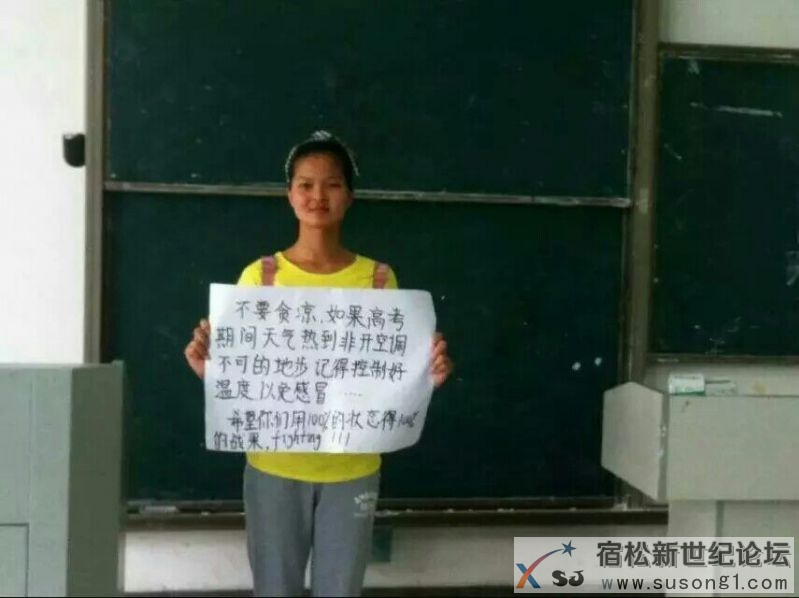 不要贪凉，如果高考
期间天气热到非开空调
不可的地步记得控制好
温度以免感冒……
希望你们用100%的状态得100%
的战果，fighting！！！
宿松新世纪论坛
XSJ
www.susong1.com